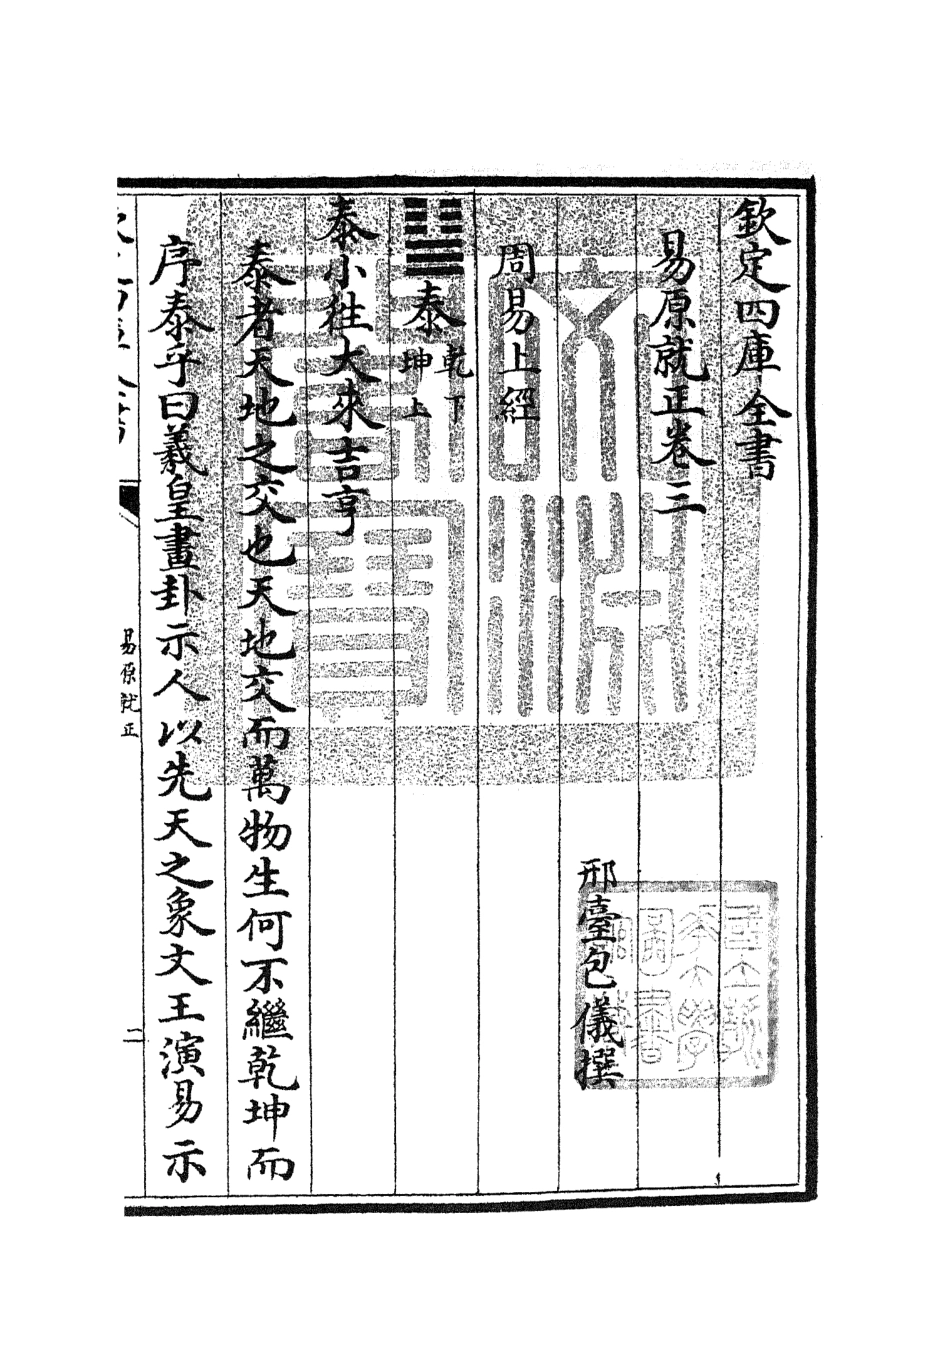 欽定四庫全書
易原就正卷三
邢臺包儀撰
周易上經
䷊泰乾下坤上
泰小往大來吉亨
泰者天地之交也天地交而萬物生何不繼乾坤而
序泰乎曰羲皇畫卦示人以先天之象文王演易示
易原就正
二